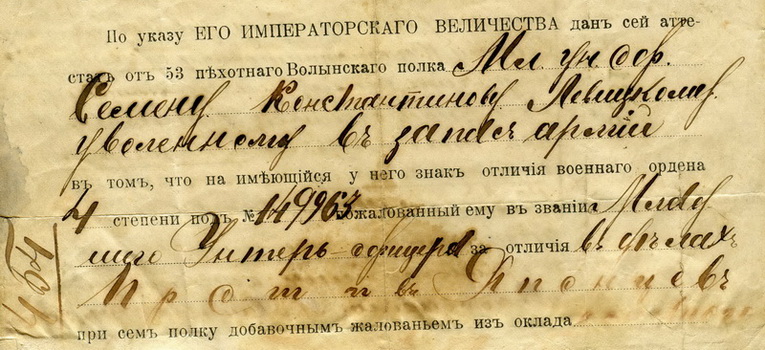 По указу ЕГО ИМПЕРАТОРСКАГО ВЕЛИЧЕСТВА данъ сей атте-
статъ отъ 53 пѣхотнаго Волынскаго полка Мл. унт. оф.
Семену Константинову
уволенному въ запасъ арміи
въ томъ, что на имѣющійся у него знакъ отличія военнаго ордена
4 степени подъ № 149963 пожалованный ему въ званіи Млад
шаго Унтеръ офицера за отличія въ дѣлахъ
противъ Японцевъ
при семъ полку добавочнымъ жалованьемъ изъ оклада
454